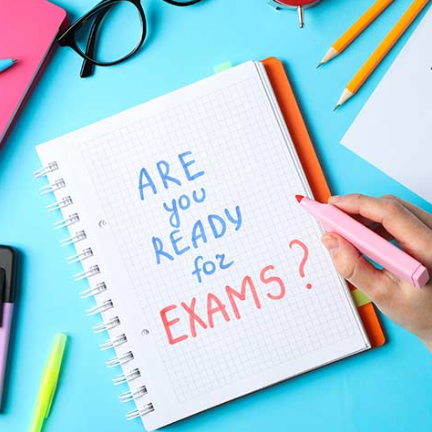 ARE
you
READY
for
EXAMS?